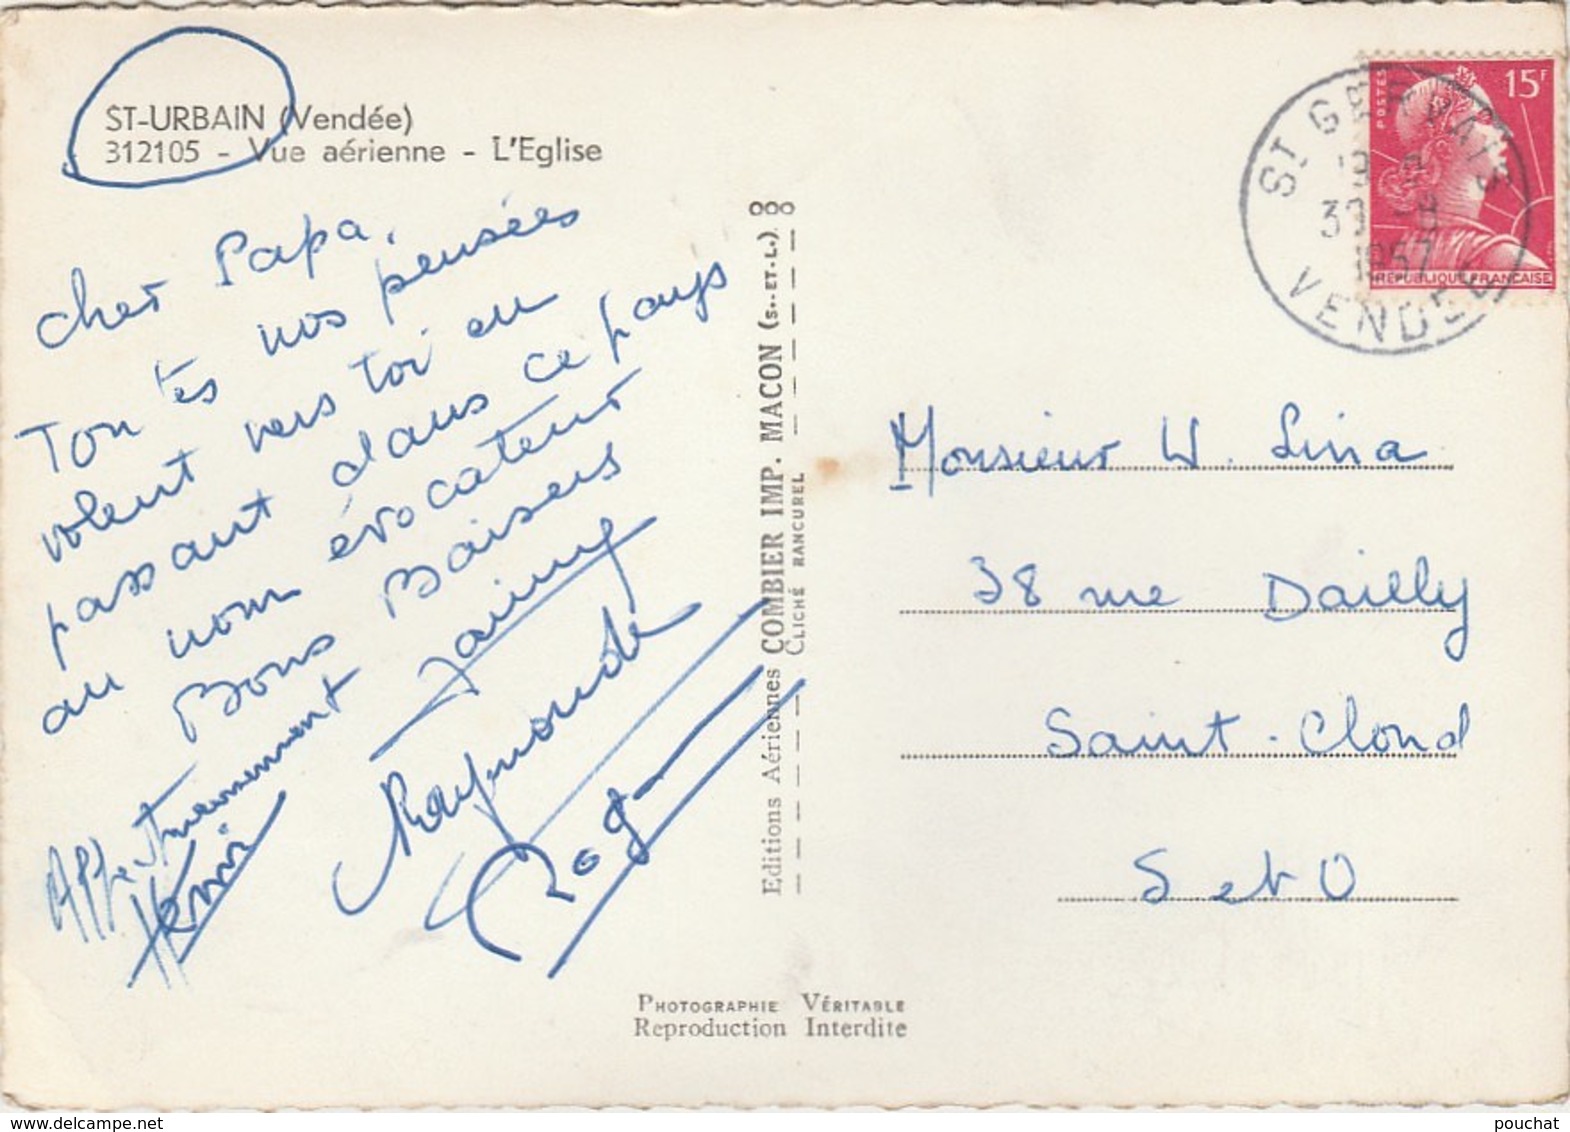 ST-URBAIN (Vendée)
312105 - Vue aérienne - L'Eglise
Cher Papa,
Toutes nos pensées
volent vers toi en
passant dans ce pays
au nom évocateur
Bons Baisers
Affectueusement
Henri
Raymonde
Roger
ooo
Editions Aériennes COMBIER IMP. MACON (S.-ET-L.)
CLICHÉ RANCUREL
PHOTOGRAPHIE VÉRITABLE
Reproduction Interdite
POSTES
15F
REPUBLIQUE FRANÇAISE
ST GERVAIS
1957
VENDEE
Monsieur W. Lina
38 rue Dailly
Saint-Cloud
S et O
pouchat